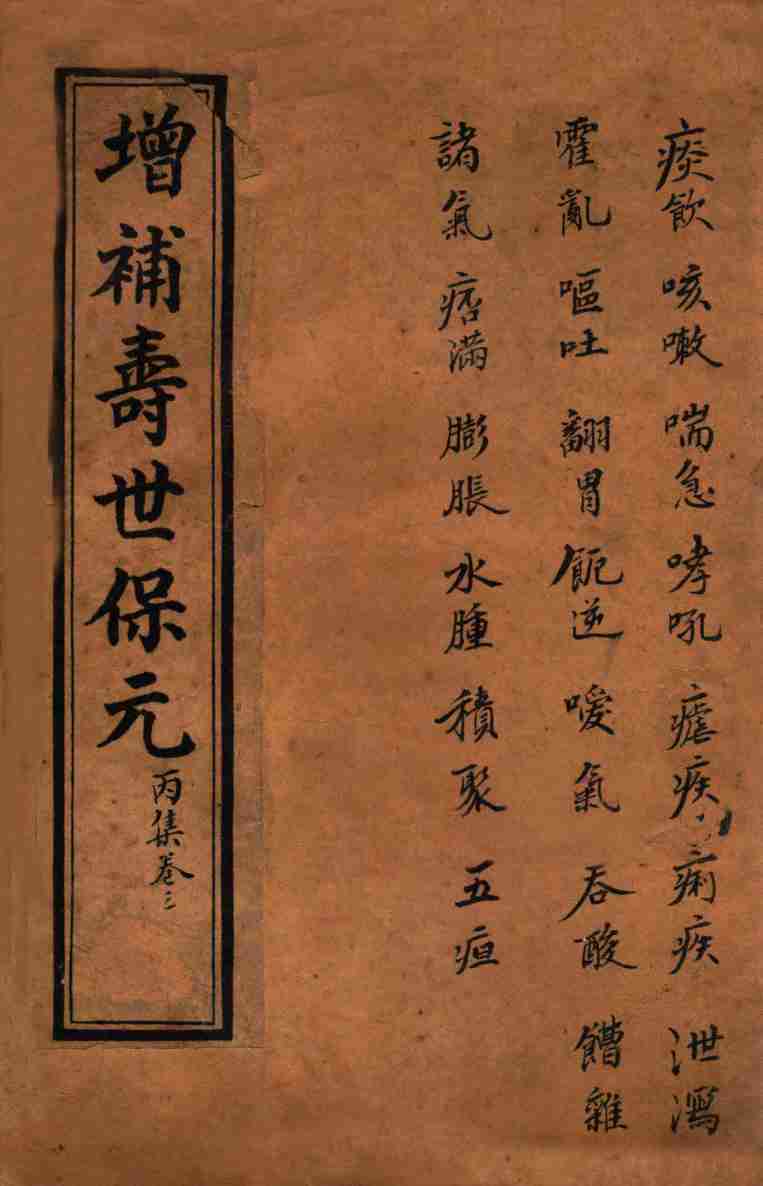 痰飲 咳嗽 喘急 哮吼 瘧疾 痢疾 泄瀉
霍亂 嘔吐 翻胃 飥逆 噯氣 吞酸 饐雜
諸氣 痞滿 膨脹 水腫 積聚 五疸
增補壽世保元
丙集卷三